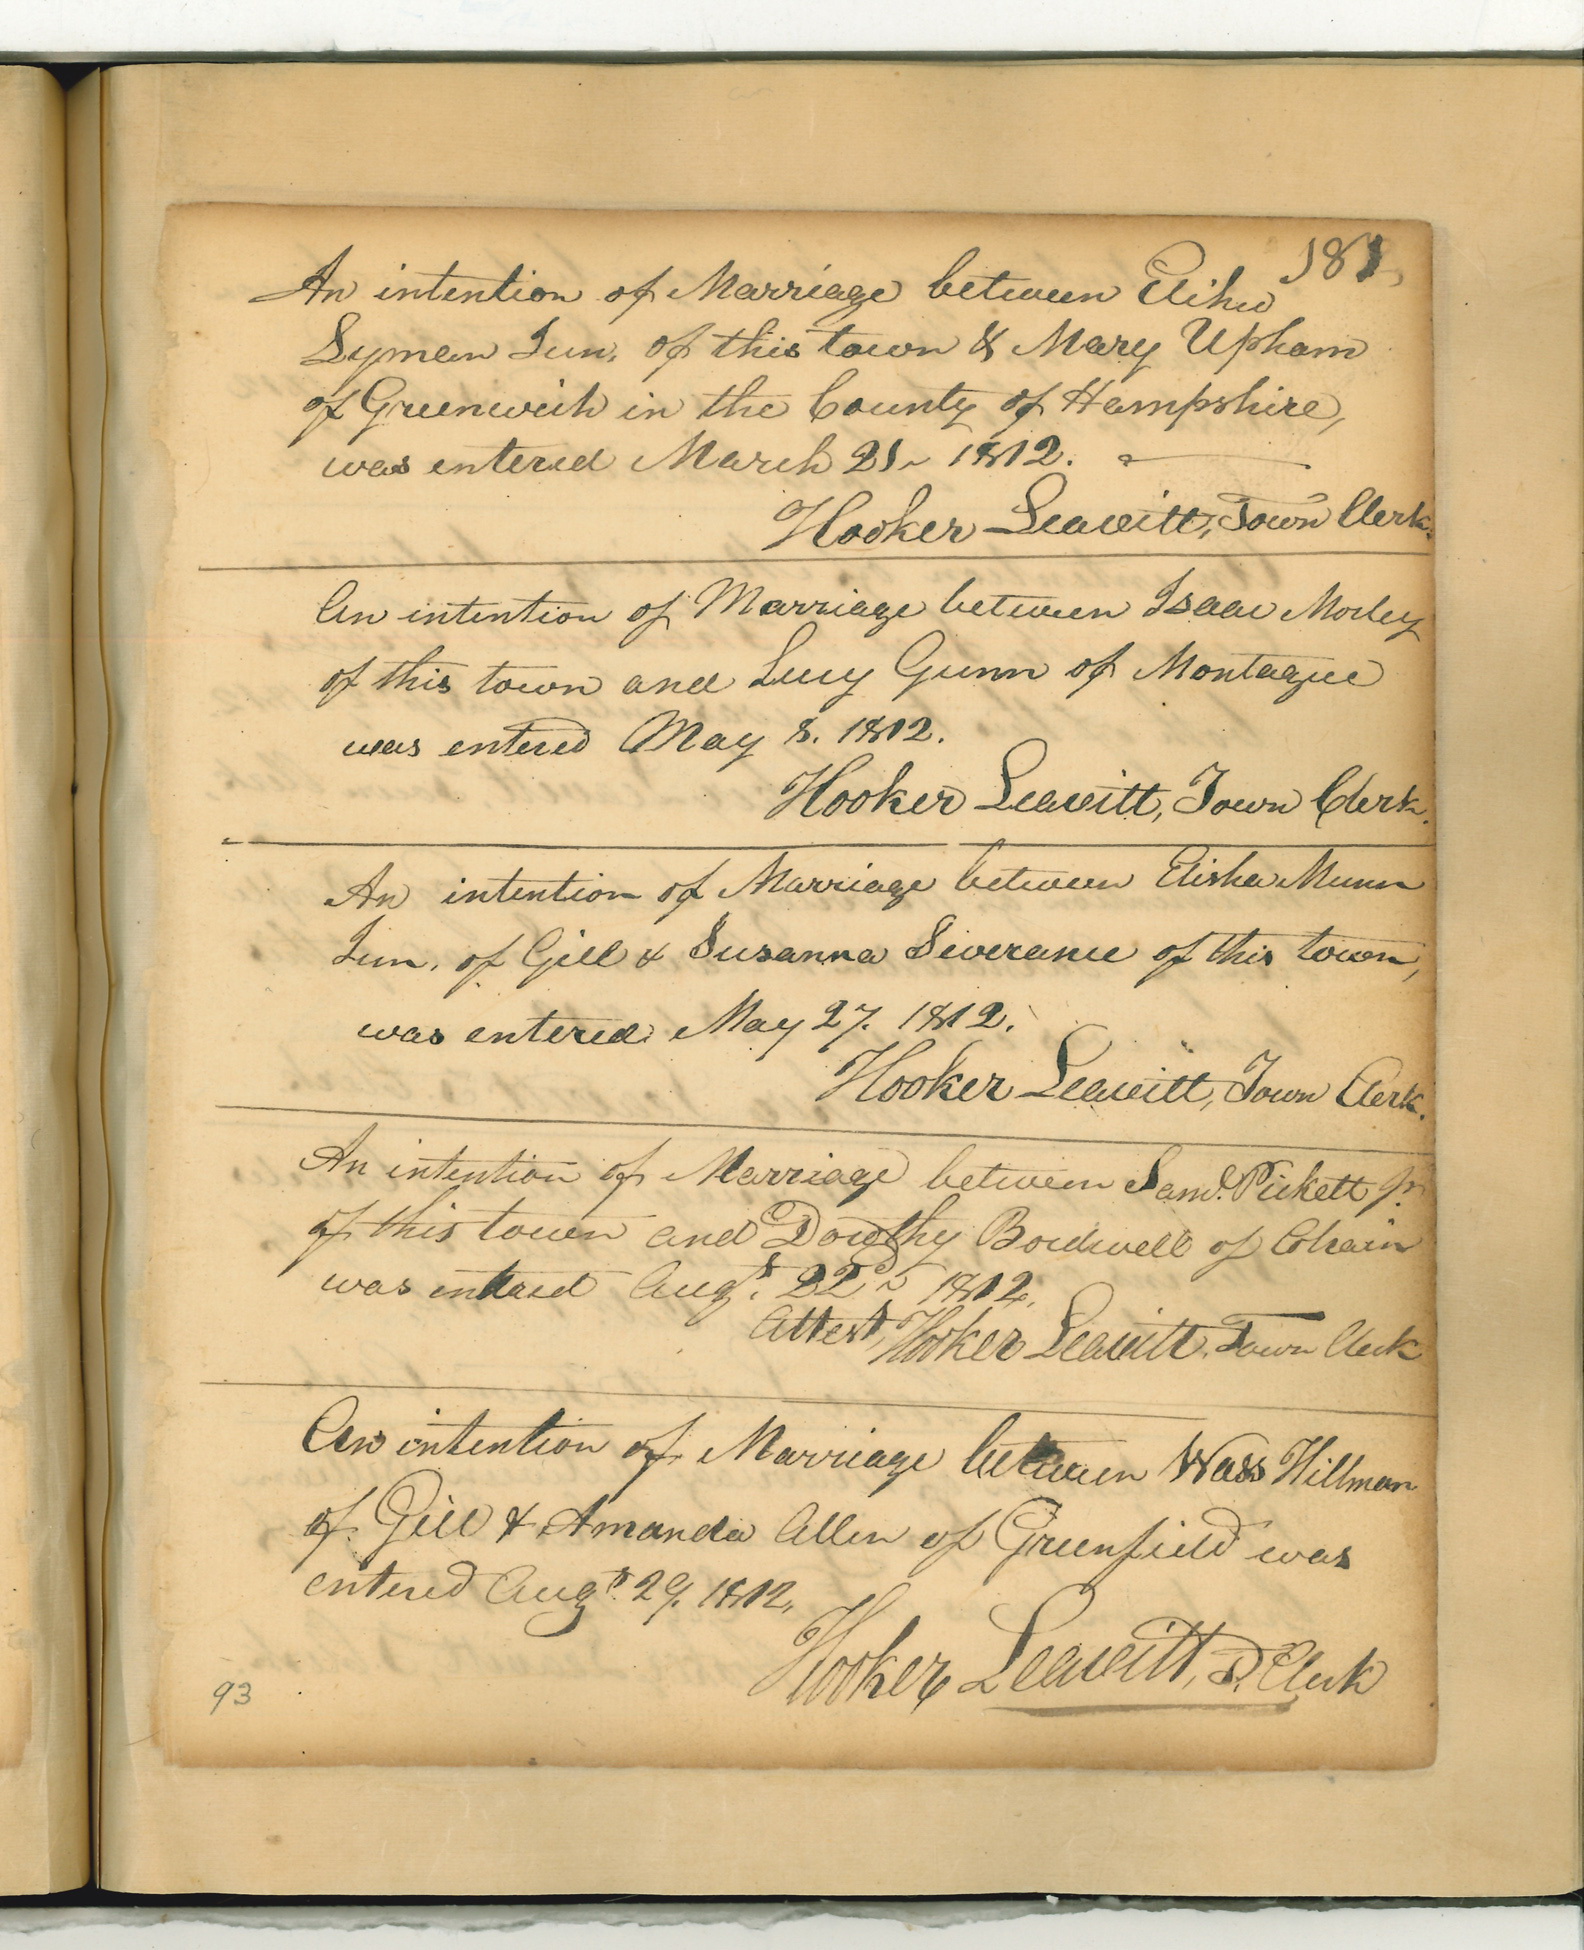 181,
An intention of Marriage between Elihu
Lyman Jun. of this town & Mary Upham
of Greenwich in the County of Hampshire,
was entered March 21, 1812.
Hooker Leavitt, Town Clerk.
An intention of Marriage between Isaac Morley
of this town and Lucy Gunn of Montague
was entered May 8. 1812.
Hooker Leavitt, Town Clerk.
An intention of Marriage between Elisha Munn
Jun. of Gill & Susanna Severance of this town,
was entered May 27. 1812.
Hooker Leavitt, Town Clerk.
An intention of Marriage between Saml. Pickett Jr.
of this town and Dorothy Bordwell of Colrain
was entered Augt. 22d 1812.
Attest, Hooker Leavitt, Town Clerk
An intention of Marriage between Wass Hillman
of Gill & Amanda Allen of Greenfield was
entered Augt. 29. 1812,
Hooker Leavitt, T. Clerk
93